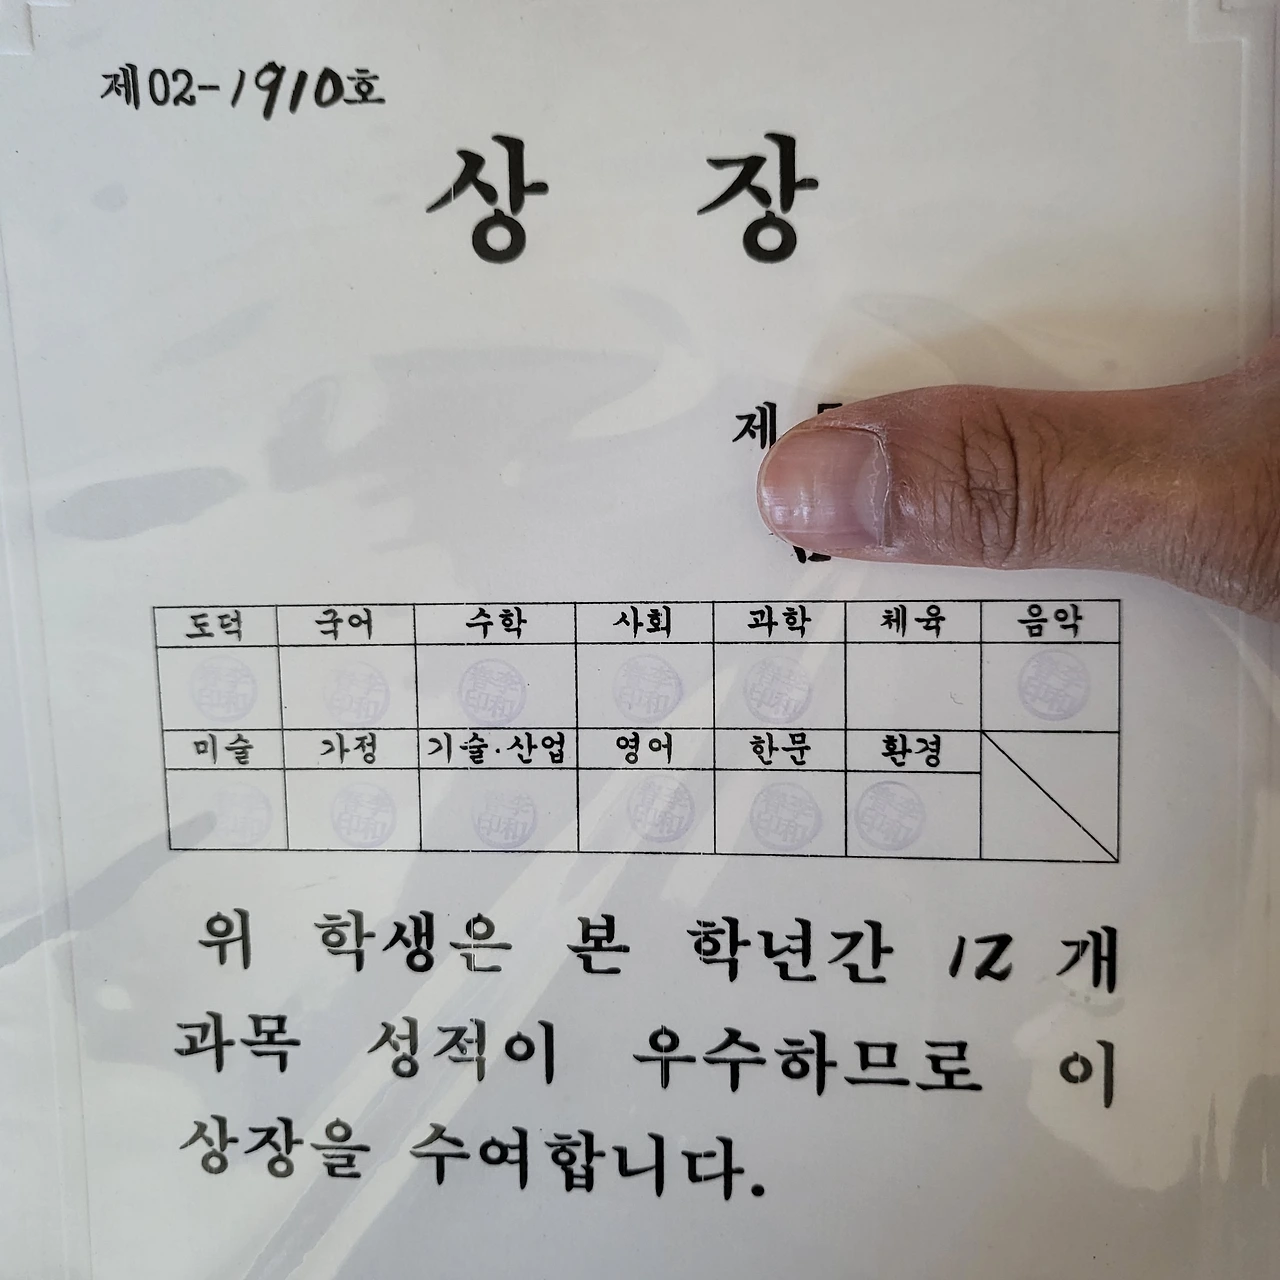 제02-1910호
상 장
제
도덕 국어 수학 사회 과학 체육 음악
미술 가정 기술·산업 영어 한문 환경
위 학생은 본 학년간 12 개
과목 성적이 우수하므로 이
상장을 수여합니다.